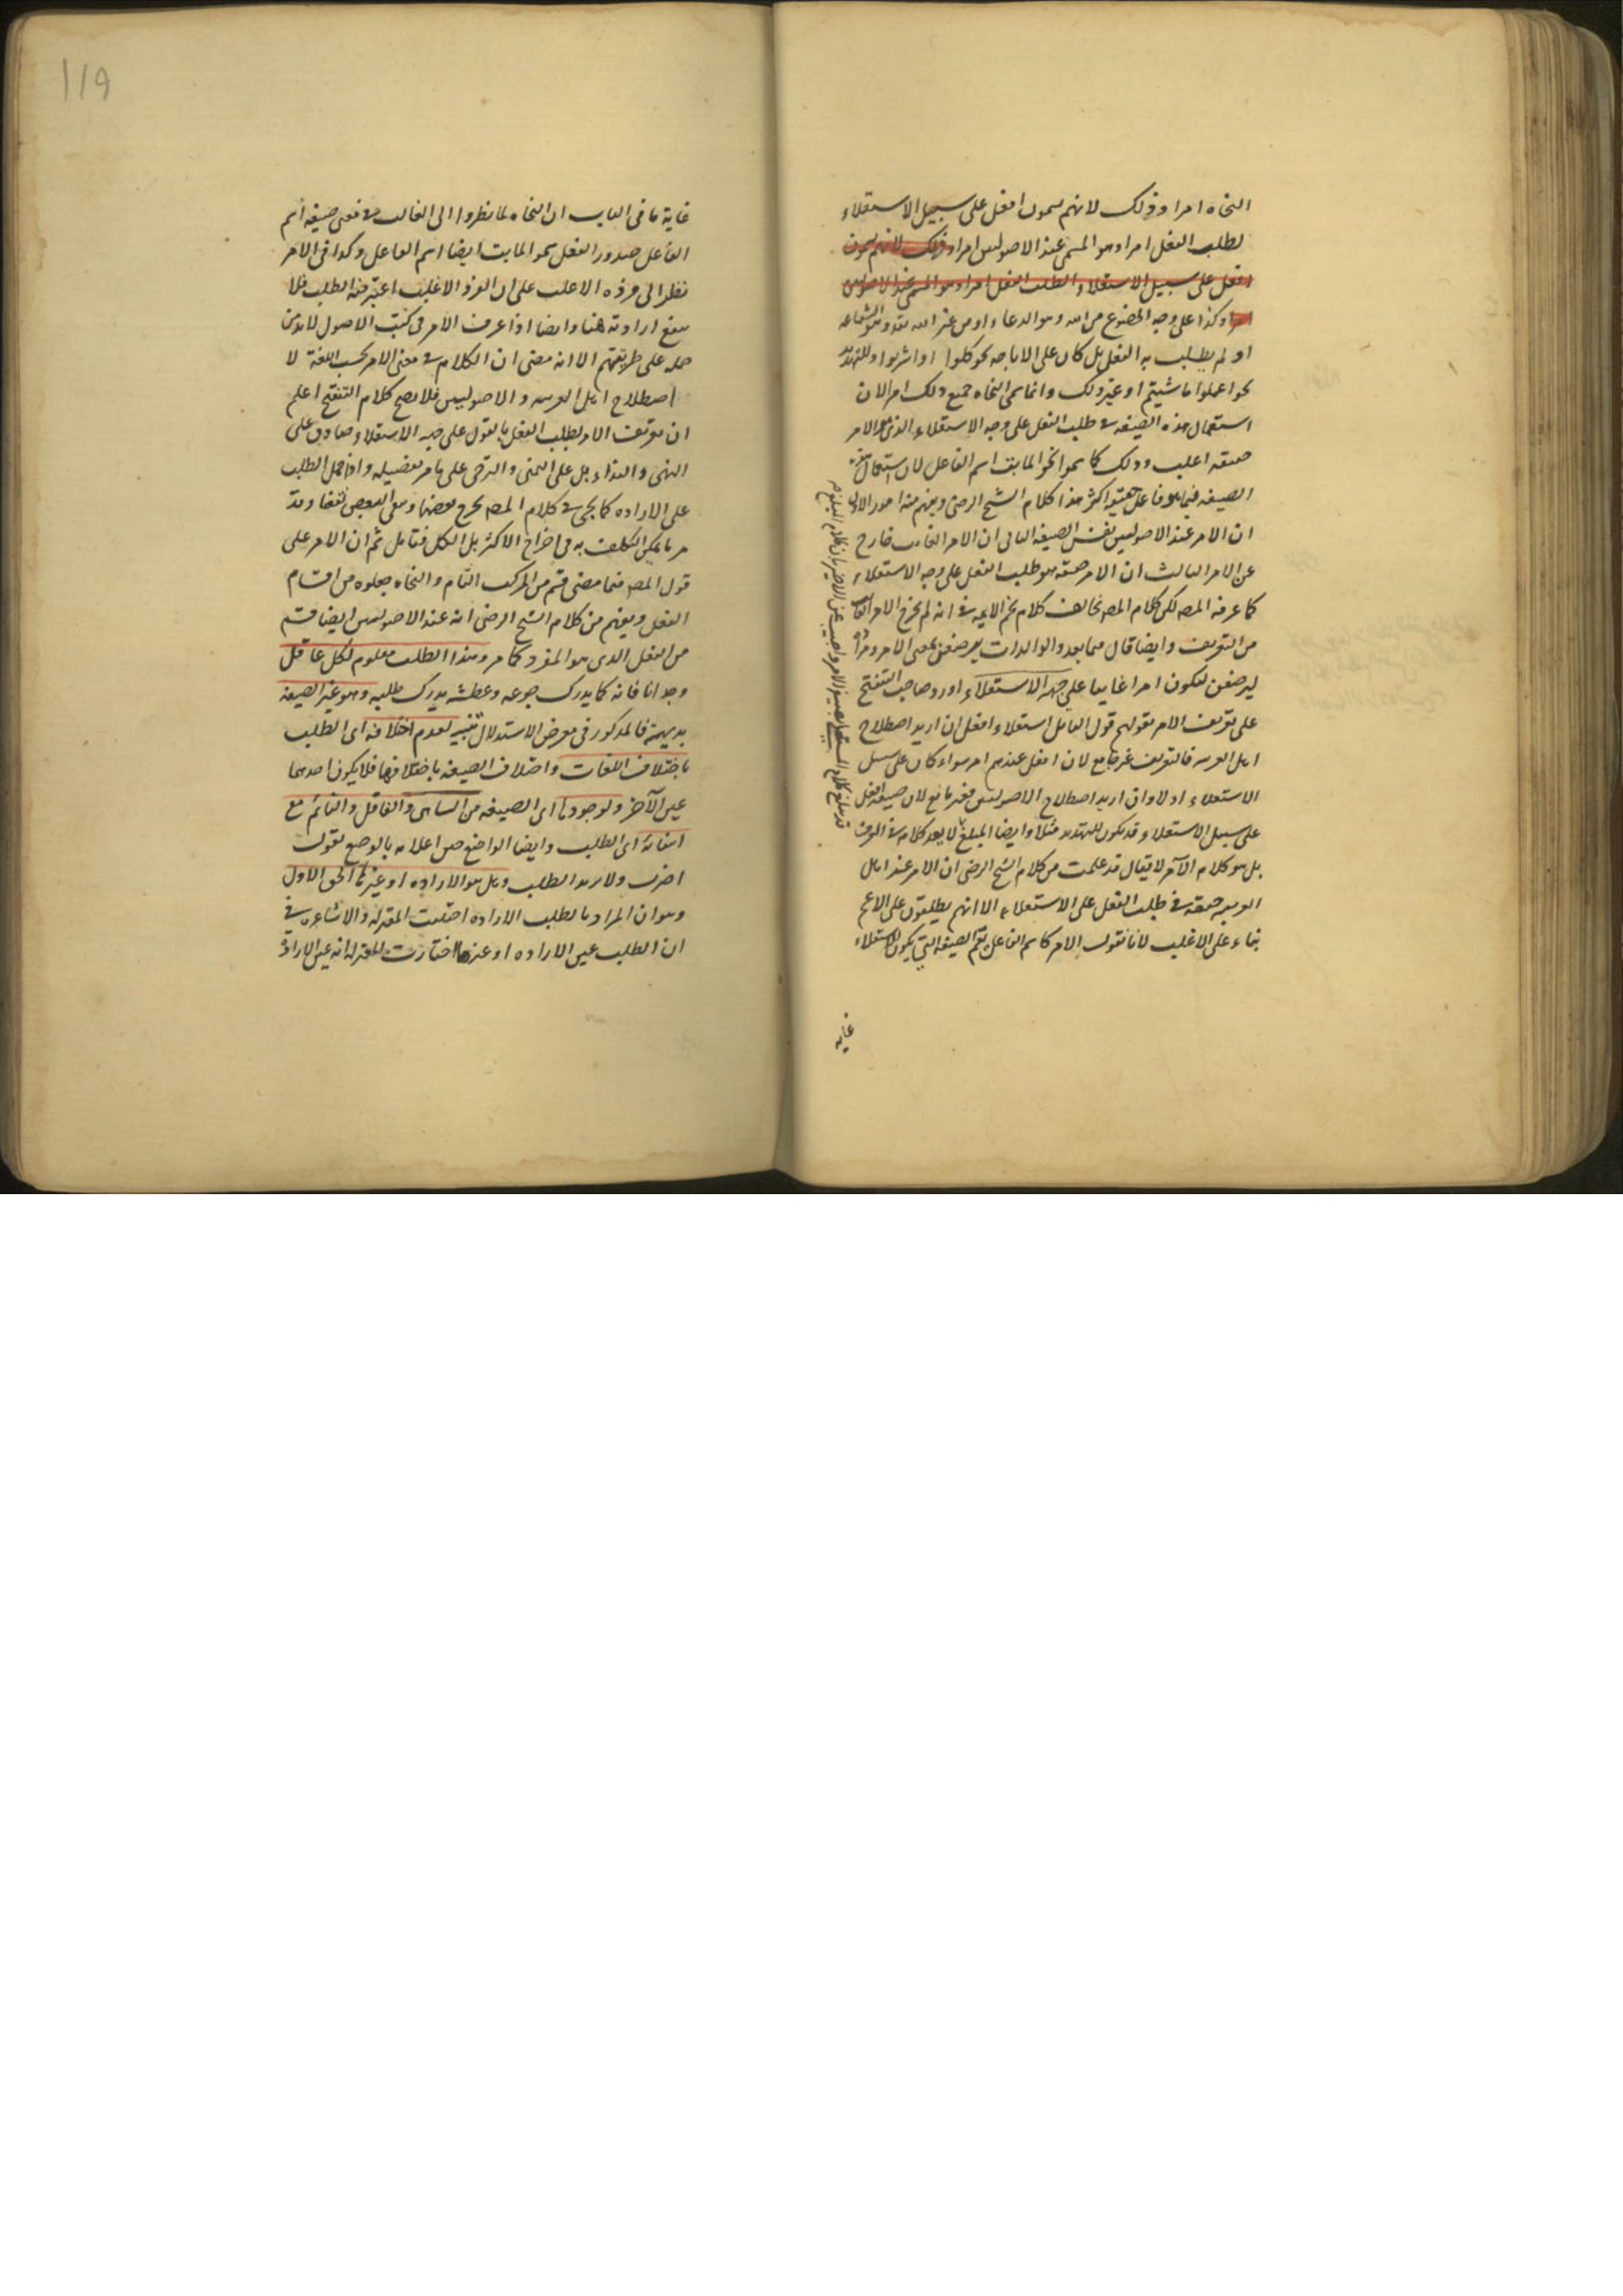 النحاه امرا وذلك لانهم يسمون افعل على سبيل الاستعلاء
لطلب الفعل امرا وهو المسمى عند الاصوليين امرا وذلك لانهم يسمون
افعل على سبيل الاستعلاء الطلب الفعل امرا وهو المسمى عند الاصوليين
امرا وكذا على وجه الخضوع من الله وهو الدعاء او من غير الله وهو الشفاعه
او لم يطلب به الفعل بل كان على الاباحه نحو كلوا او اشربوا او للتهديد
نحو اعملوا ما شيتم او غير ذلك وانما سمى النحاه جميع ذلك امرا لان
استعمال هذه الصيغه في طلب الفعل على وجه الاستعلاء الذي هو الامر
حقيقه اغلب وذلك كما سموا نحو المايت اسم الفاعل لان استعمال هذه
الصيغه فيما هو فاعل حقيقة اكثر هذا كلام الشيخ الرضي ويفهم منه امور الاول
ان الامر عند الاصوليين نفس الصيغه الثاني ان الامر الغايب خارج
عن الامر الثالث ان الامر حقيقه هو طلب الفعل على وجه الاستعلاء
كما عرفه المصـ لكن كلام المصـ يخالف كلام نجم الايمه في انه لم يخرج الامر الغايب
من التعريف وايضا قال فيما بعد والوالدات يرضعن بمعنى الامر ومراده
ليرضعن ليكون امرا غايبا على جهه الاستعلاء اورد صاحب التنقيح
على تعريف الامر بقولهم قول القايل استعلاء افعل ان اريد اصطلاح
اهل العربيه فالتعريف غير جامع لان افعل عندهم امر سواء كان على سبيل
الاستعلاء اولا وان اريد اصطلاح الاصوليين فغير مانع لان صيغه افعل
على سبيل الاستعلاء قد يكون للتهديد مثلا وايضا المبلغ لا يعد كلامه في العرف
بل هو كلام الآمر لا يقال قد علمت من كلام الشيخ الرضي ان الامر عند اهل
العربيه حقيقه في طلب الفعل على الاستعلاء الا انهم يطلقون على الاعم
بناء على الاغلب لانا نقول الامر كاسم الفاعل يعم الصيغه التي يكون للاستعلاء
غايه
غاية ما في الباب ان النحاه لما نظروا الى الغالب في معنى صيغه اسم
الفاعل صدور الفعل سموا المايت ايضا اسم الفاعل وكذا في الامر
نظرا الى فرده الاغلب على ان الفرد الاغلب اعتبر فيه الطلب فلا
ينفع ارادته هنا وايضا اذا عرف الامر في كتب الاصول لا بد من
حمله على طريقتهم الا انه مضى ان الكلام في معنى الامر بحسب اللغة لا
اصطلاح اهل العربيه والاصوليين فلا يصح كلام التنقيح اعلم
ان تعريف الامر بطلب الفعل بالقول على جهه الاستعلاء صادق على
النهي والنداء بل على التمني والترجي على ما مر تفصيله واذا حمل الطلب
على الاراده كما يجي في كلام المصـ يخرج بعضها وبقي البعض نقضا وقد
مر ما يمكن التكلف به في اخراج الاكثر بل الكل فتامل ثم ان الامر على
قول المصـ فيما مضى قسم من المركب التام والنحاه جعلوه من اقسام
الفعل ويفهم من كلام الشيخ الرضي انه عند الاصوليين ايضا قسم
من الفعل الذي هو المفرد كما مر وهذا الطلب معلوم لكل عاقل
وجدانا فانه كما يدرك جوعه وعطشه يدرك طلبه وهو غير الصيغه
بديهية فالمذكور في معرض الاستدلال تنبيه لعدم اختلافه اى الطلب
باختلاف اللغات واختلاف الصيغه باختلافها فلا يكون احدهما
عين الآخر ولوجودها اى الصيغه من الساهي والغافل والنائم مع
انتفائه اى الطلب وايضا الواضع حين اعلامه بالوضع يقول
اضرب ولا يريد الطلب وهل هو الاراده او غيرها الحق الاول
وهو ان المراد بالطلب الاراده اختلفت المعتزله والاشاعره في
ان الطلب عين الاراده او غيرها اختارت المعتزله انه عين الارادة